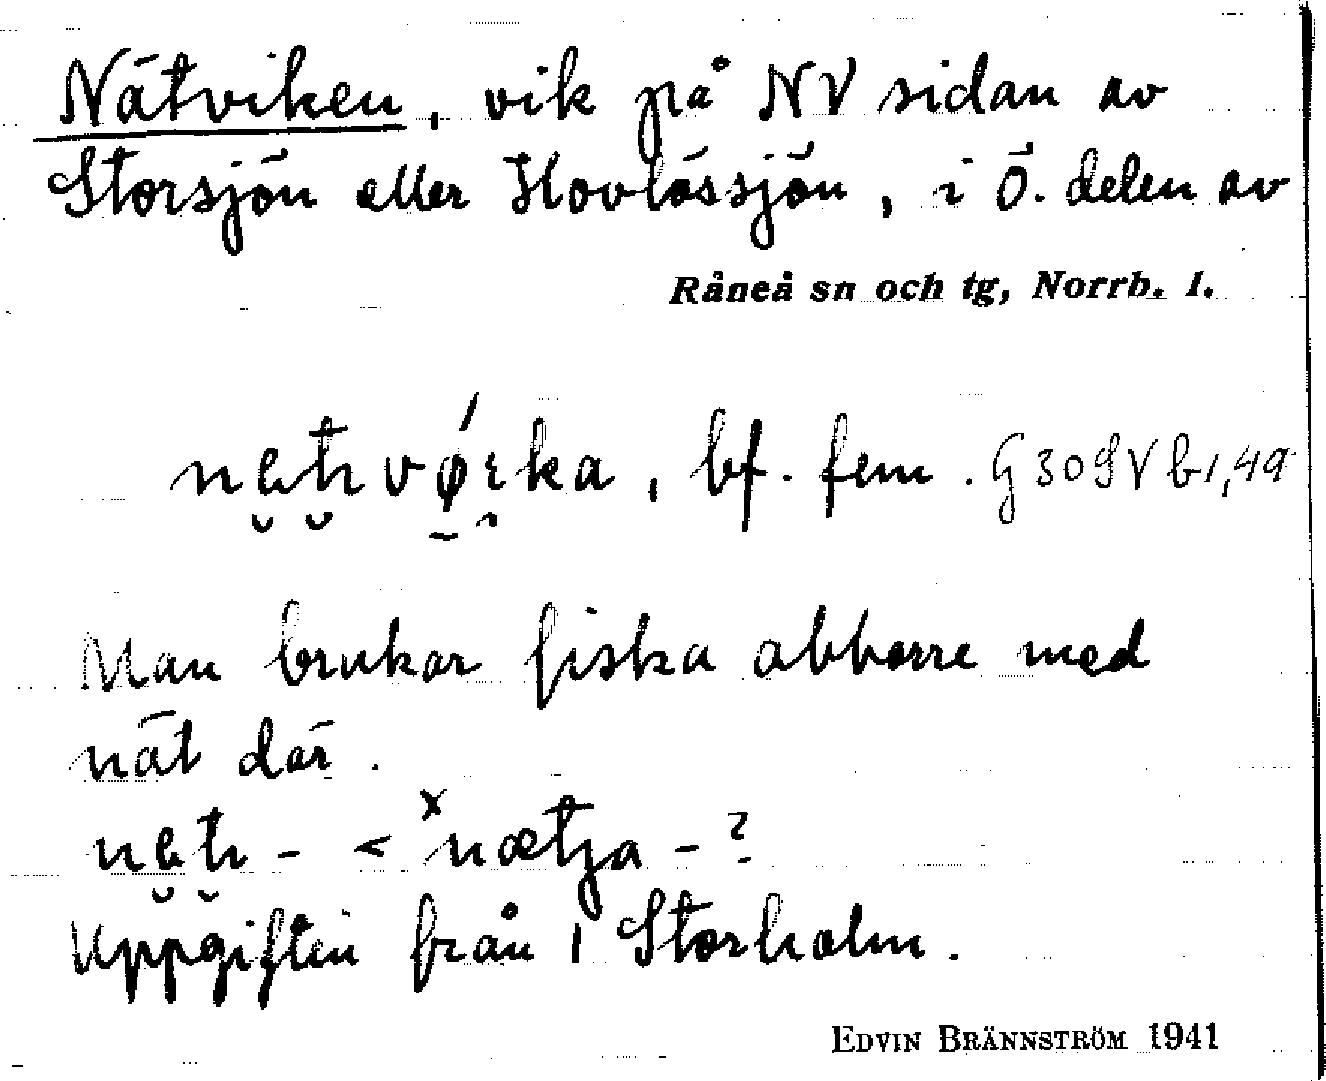 Nätviken, vik på NV sidan av
Storsjön eller Hovlössjön, i Ö. delen av
Råneå sn och tg, Norrb. l.
bf. fem. G309Vb1,49
Man brukar fiska abborre med
nät där.
- < ˣnætja - ?
Uppgiften från 1 Storholm.
EDVIN BRÄNNSTRÖM 1941